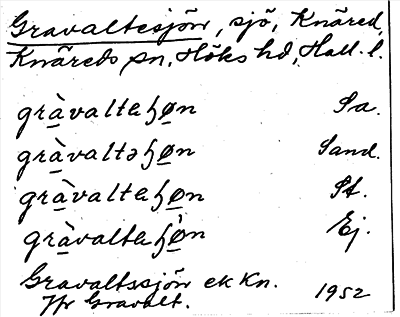 Gravaltesjön, sjö, Knäred,
Knäreds sn, Höks hd, Hall. l.
gràvaltaɧøn Sa.
gràvaltəɧøn Sand.
gràvaltaɧøn St.
gràvaltaɧø̀n Ej.
Gravaltssjön ek Kn.
Jfr Gravalt. 1952